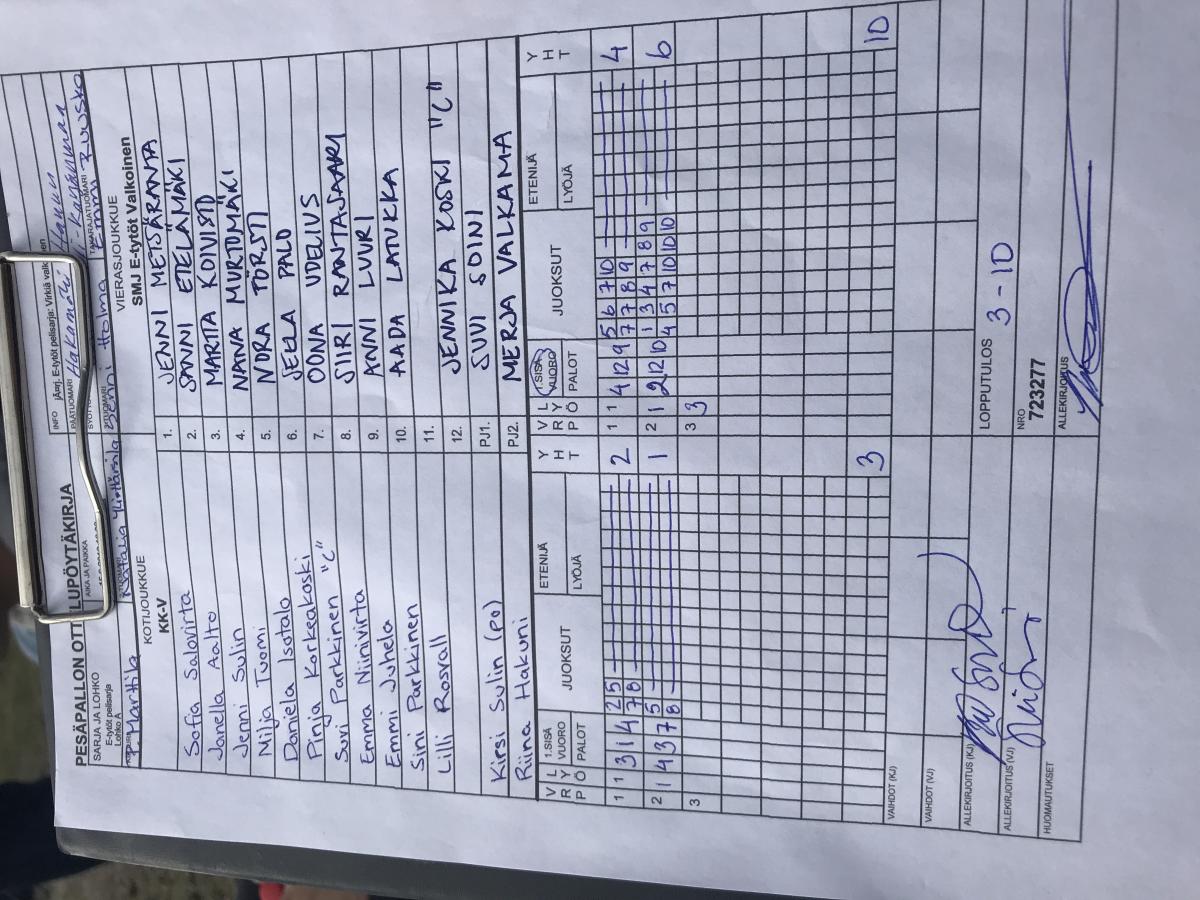 PESÄPALLON OTT LUPÖYTÄKIRJA
SARJA JA LOHKO
E-tytöt pelisarja
Lohko A
AIKA JA PAIKKA
INFO
PÄÄTUOMARI Hakamäki Hannu
TAKARAJATUOMARI
Marttila
Natalia
Senni Holma
Emma Ruusko
KOTIJOUKKUE
KK-V
VIERASJOUKKUE
SMJ E-tytöt Valkoinen
Sofia Salovirta 1. JENNI METSÄRANTA
Janella Aalto 2. SANNI ETELÄMÄKI
Jenni Sulin 3. MARTTA KOIVISTO
Milja Tuomi 4. NANA MURTOMÄKI
Daniela Isotalo 5. NORA TÖRSTI
Pinja Korkeakoski 6. JEELA PALO
Suvi Parkkinen "C" 7. OONA UDELIUS
Emma Niinivirta 8. SIIRI RANTASAARI
Emmi Juhela 9. ANNI LUURI
Sini Parkkinen 10. AADA LATUKKA
Lilli Rosvall 11.
12. JENNIKA KOSKI "C"
Kirsi Sulin (po) PJ1. SUVI SOINI
Riina Hakuni PJ2. MERJA VALKAMA
V R P L Y Ö 1.SISÄ VUORO PALOT JUOKSUT ETENIJÄ LYÖJÄ Y H T V R P L Y Ö 1.SISÄ VUORO PALOT JUOKSUT ETENIJÄ LYÖJÄ Y H T
1 1 3 1 4 2 5 2 1 1 4 12 9 5 6 7 10 4
4 7 8 7 7 8 9
2 1 4 3 7 5 1 2 1 2 12 10 1 3 4 7 8 9 6
8 8 4 5 7 10 10 10
3 3 3
3 10
VAIHDOT (KJ)
VAIHDOT (VJ)
ALLEKIRJOITUS (KJ)
LOPPUTULOS 3 - 10
ALLEKIRJOITUS (VJ)
NRO
723277
HUOMAUTUKSET
ALLEKIRJOITUS